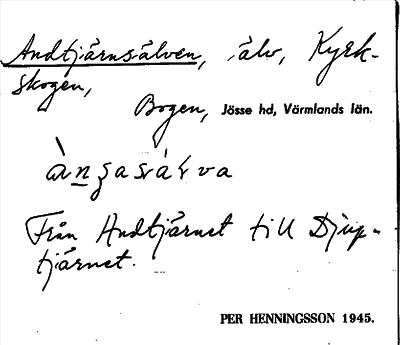 Andtjärnsälven, älv, Kyrk-
skogen,
Bogen, Jösse hd, Värmlands län.
Från Andtjärnet till Djup-
tjärnet.
PER HENNINGSSON 1945.